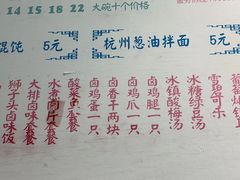 14 15 18 22 大碗十个价格
馄饨 5元 杭州葱油拌面 5元
狮子头卤味饭
大排卤味套餐
水煮肉片套餐
酸菜鱼套餐
卤鸡蛋一只
卤香干两块
卤鸡爪一只
卤鸡腿一只
冰镇酸梅汤
冰糖绿豆汤
雪碧可乐